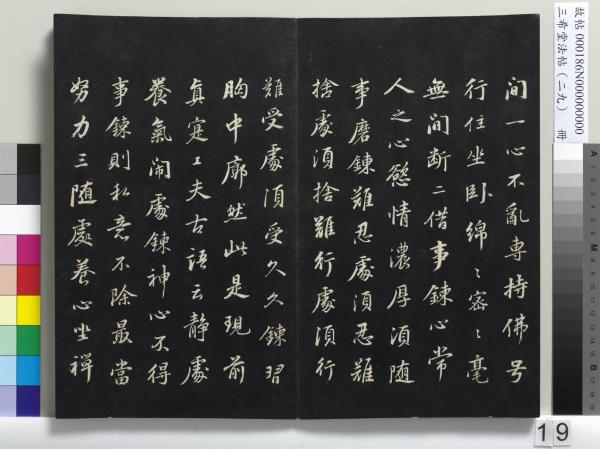 間一心不亂專持佛号
行住坐卧綿〻密〻毫
無間断二借事鍊心常
人之心慾情濃厚須随
事磨鍊難忍處須忍難
捨處須捨難行處須行
難受處須受久久鍊習
胸中廓然此是現前
真寔工夫古語云靜處
養氣闹處鍊神心不得
事鍊則私意不除最當
努力三随處養心坐禅
故帖 000186N000000000
三希堂法帖（二九） 冊
19